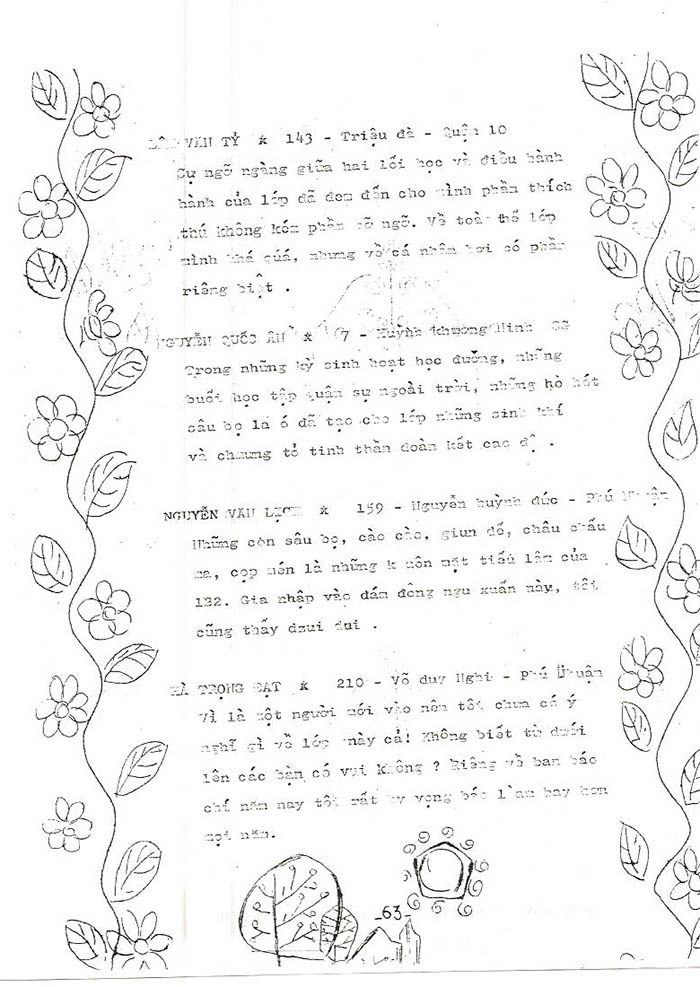 VĂN TỶ * 143 - Triệu đà - Quận 10
Sự ngỡ ngàng giữa hai lối học và điều hành
hành của lớp đã đem đến cho mình phần thích
thú không kém phần bỡ ngỡ. Về toàn thể lớp
mình khá quá, nhưng về cá nhân hơi có phần
riêng biệt .
NGUYỄN QUỐC ÂN * 7 - Huỳnh khương Ninh
Trong những kỳ sinh hoạt học đường, những
buổi học tập quân sự ngoài trời, những hò hét
sâu bọ la ó đã tạo cho lớp những sinh khí
và chưung tỏ tinh thần đoàn kết cao độ .
NGUYỄN VĂN LỊCH * 159 - Nguyễn huỳnh đức - Phú Nhuận
Những còn sâu bọ, cào cào, giun dế, châu chấu
ma, cọp mén là những k uôn mặt tiểu lâm của
122. Gia nhập vào đám đông ngu xuẩn này, tôi
cũng thấy dzui dui .
HÀ TRỌNG ĐẠT * 210 - Võ duy Nghi - Phú Nhuận
Vì là một người mới vào nên tôi chưa có ý
nghĩ gì về lớp này cả! Không biết từ dưới
lên các bạn có vui không ? Riêng về ban báo
chí năm nay tôi rất hy vọng báo làm hay hơn
mọi năm.
_63_